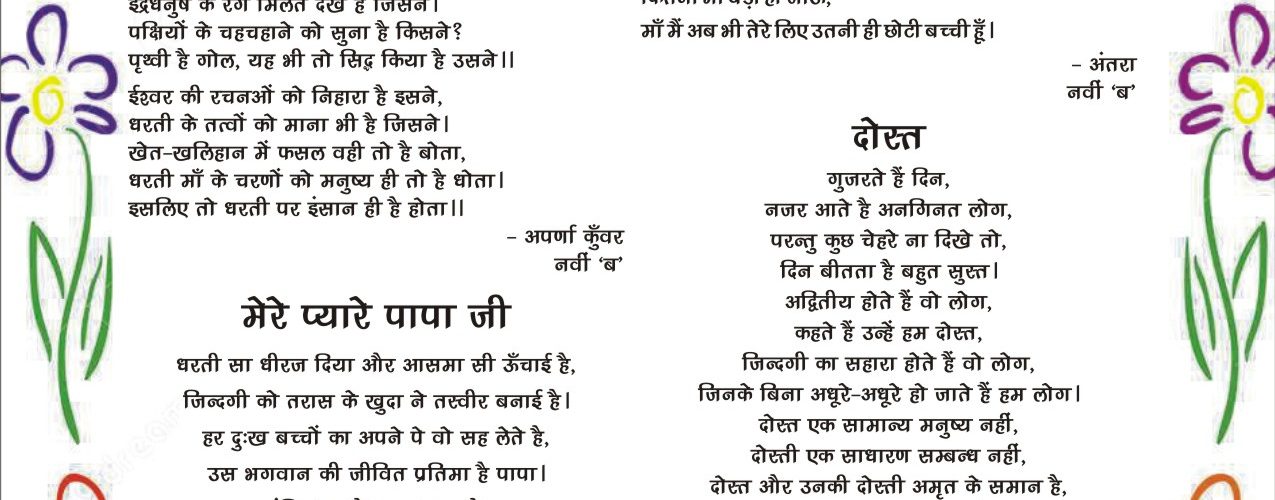 इंद्रधनुष के रंग मिलते देखे हैं जिसने।
पक्षियों के चहचहाने को सुना है किसने?
पृथ्वी है गोल, यह भी तो सिद्ध किया है उसने।।
ईश्वर की रचनओं को निहारा है इसने,
धरती के तत्वों को माना भी है जिसने।
खेत-खलिहान में फसल वही तो है बोता,
धरती माँ के चरणों को मनुष्य ही तो है धोता।
इसलिए तो धरती पर इंसान ही है होता।।
- अपर्णा कुँवर
नवीं ‘ब’
मेरे प्यारे पापा जी
धरती सा धीरज दिया और आसमा सी ऊँचाई है,
जिन्दगी को तरास के खुदा ने तस्वीर बनाई है।
हर दुःख बच्चों का अपने पे वो सह लेते है,
उस भगवान की जीवित प्रतिमा है पापा।
माँ मैं अब भी तेरे लिए उतनी ही छोटी बच्ची हूँ।
- अंतरा
नवीं ‘ब’
दोस्त
गुजरते हैं दिन,
नजर आते है अनगिनत लोग,
परन्तु कुछ चेहरे ना दिखे तो,
दिन बीतता है बहुत सुस्त।
अद्वितीय होते हैं वो लोग,
कहते हैं उन्हें हम दोस्त,
जिन्दगी का सहारा होते हैं वो लोग,
जिनके बिना अधूरे-अधूरे हो जाते हैं हम लोग।
दोस्त एक सामान्य मनुष्य नहीं,
दोस्ती एक साधारण सम्बन्ध नहीं,
दोस्त और उनकी दोस्ती अमृत के समान है,